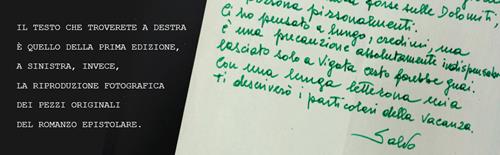 IL TESTO CHE TROVERETE A DESTRA
È QUELLO DELLA PRIMA EDIZIONE,
A SINISTRA, INVECE,
LA RIPRODUZIONE FOTOGRAFICA
DEI PEZZI ORIGINALI
DEL ROMANZO EPISTOLARE.
forse sulle Dolomiti,
persona personalmenti.
Ci ho pensato a lungo, credimi, ma
è una precauzione assolutamente indispensabile
lasciato solo a Vigata certo farebbe guai.
Con una lunga letterona mia
ti descriverò i particolari della vacanza.
Salvo